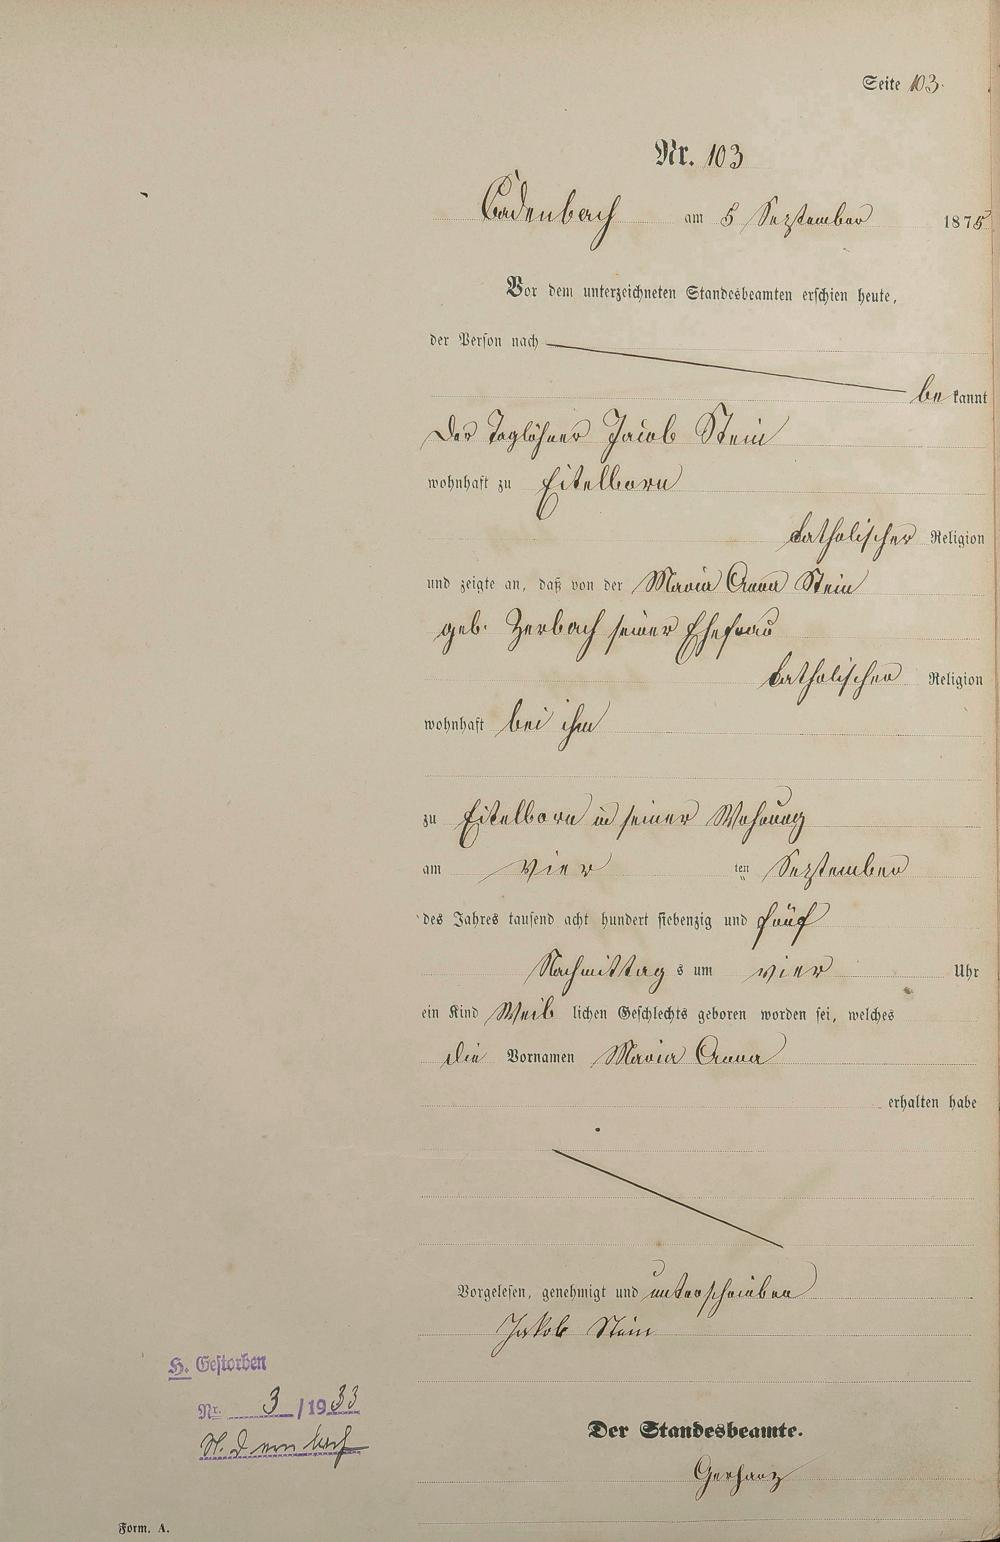 Seite 103.
Nr. 103
Cadenbach am 5 September 1875
Vor dem unterzeichneten Standesbeamten erschien heute,
der Person nach
be kannt
der Taglöhner Jacob Stein
wohnhaft zu Eitelborn
katholischer Religion
und zeigte an, daß von der Maria Anna Stein
geb. Zerbach seiner Ehefrau
katholischer Religion
wohnhaft bei ihm
zu Eitelborn in seiner Wohnung
am vier ten September
des Jahres tausend acht hundert siebenzig und fünf
Nachmittag s um vier Uhr
ein Kind Weib lichen Geschlechts geboren worden sei, welches
die Vornamen Maria Anna
erhalten habe
Vorgelesen, genehmigt und unterschrieben
Jakob Stein
H. Gestorben
Nr. 3 / 1933
Der Standesbeamte.
Gerharz
Form. A.